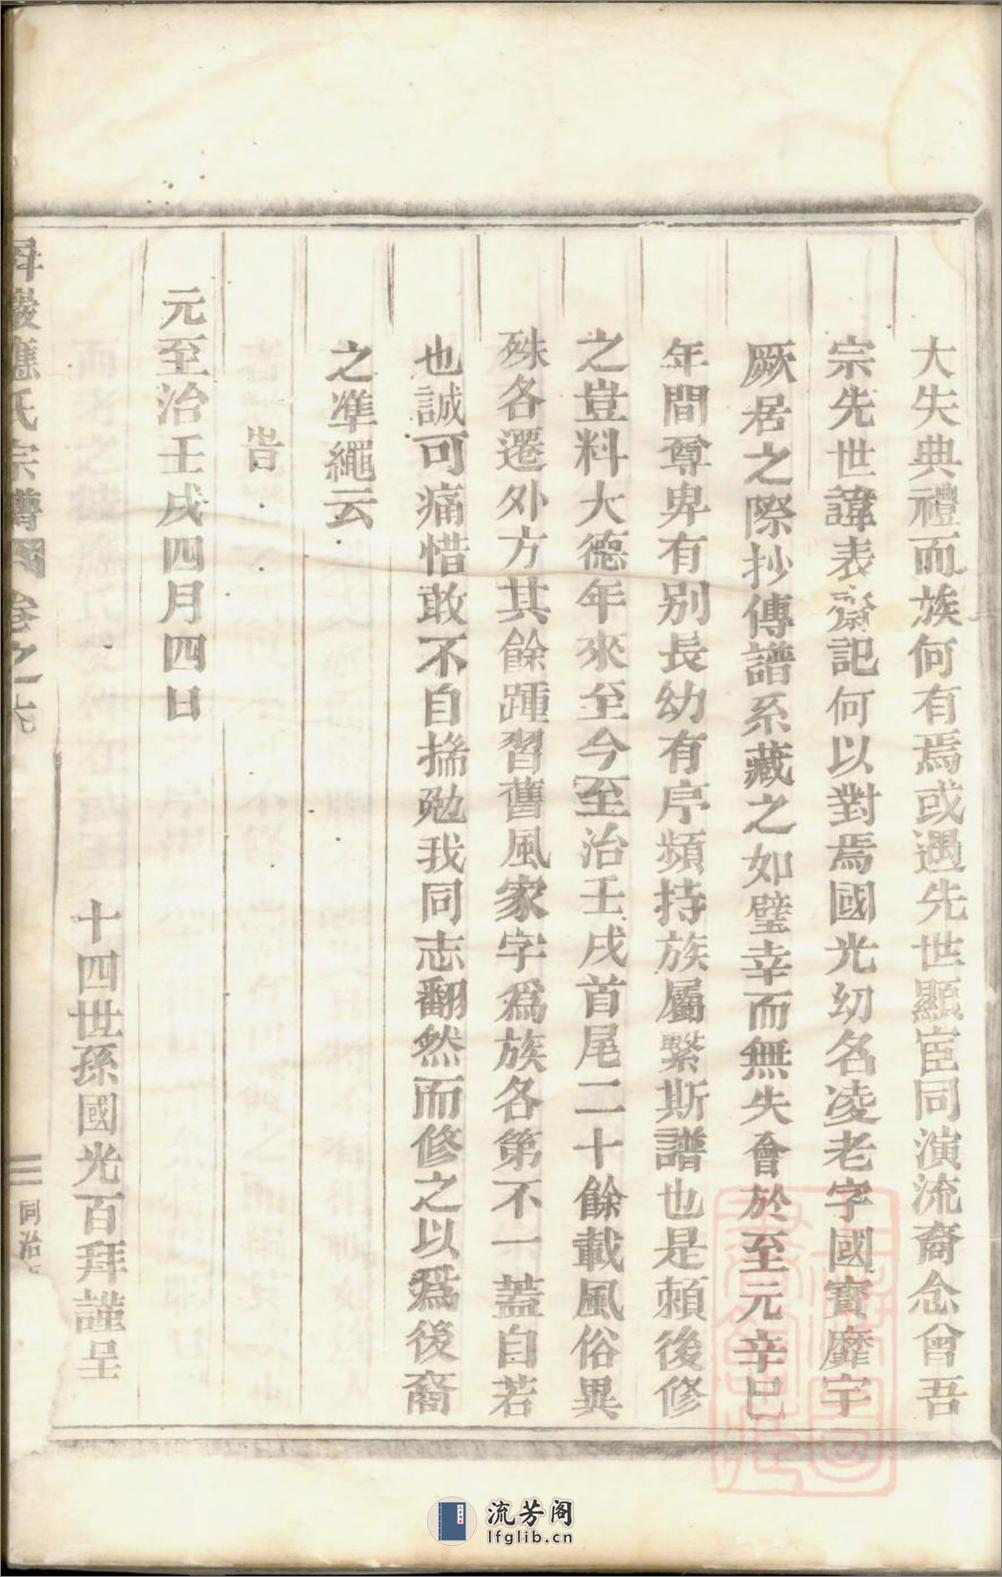 大失典禮而族何有焉或遇先世顯宦同演流裔念曾吾
宗先世諱表齋記何以對焉國光幼名凌老字國賓靡宇
厥居之際抄傳譜系藏之如璧幸而無失會於至元辛巳
年間尊卑有別長幼有序頻持族屬繫斯譜也是頼後修
之豈料大德年來至今至治壬戌首尾二十餘載風俗異
殊各遷外方其餘踵習舊風家字爲族各第不一蓋自若
也誠可痛惜敢不自揣勉我同志翻然而修之以爲後裔
之準繩云
告
元至治壬戌四月四日
十四世孫國光百拜謹呈
應氏宗譜 卷之六
三 同治
流芳阁
lfglib.cn